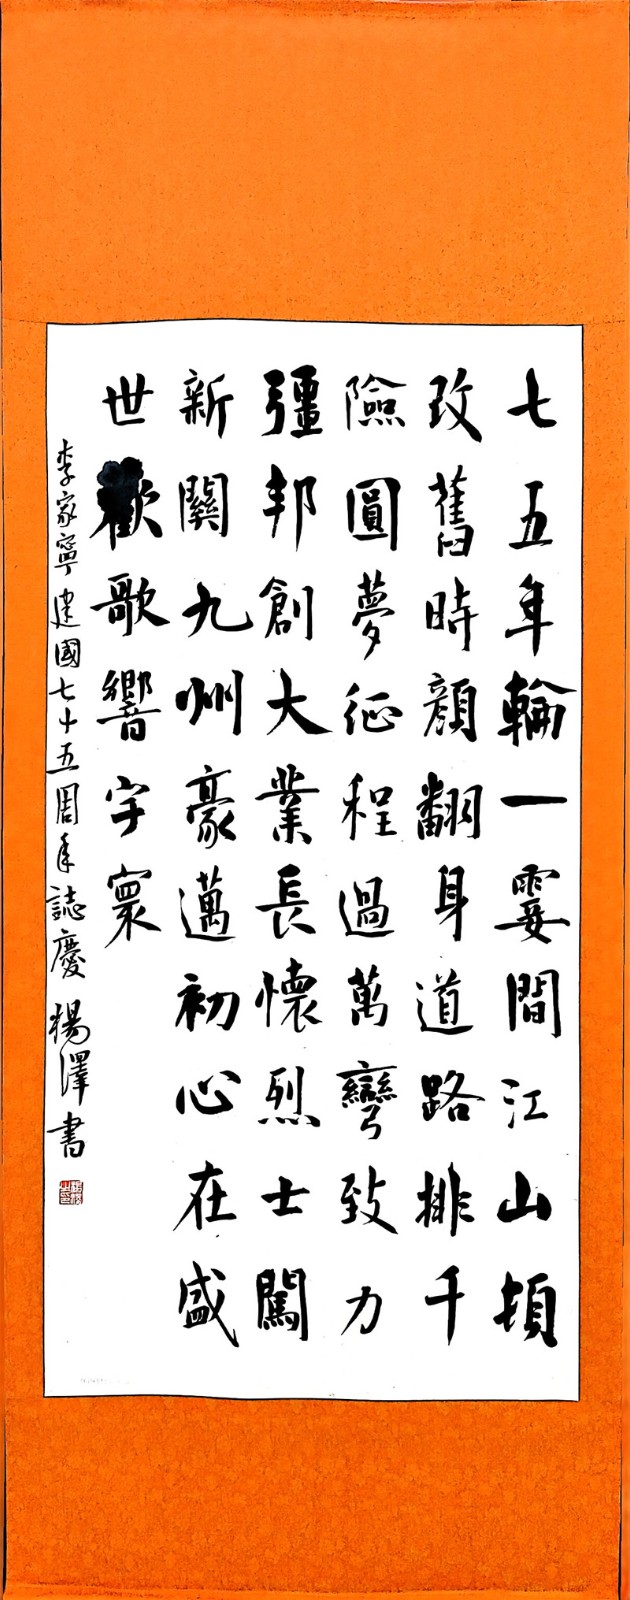 七五年輪一霎間江山頓
改舊時顏翻身道路排千
險圓夢征程過萬彎致力
彊邦創大業長懷烈士闖
新關九州豪邁初心在盛
世歡歌響宇寰
李家寧建國七十五周年誌慶 楊澤書